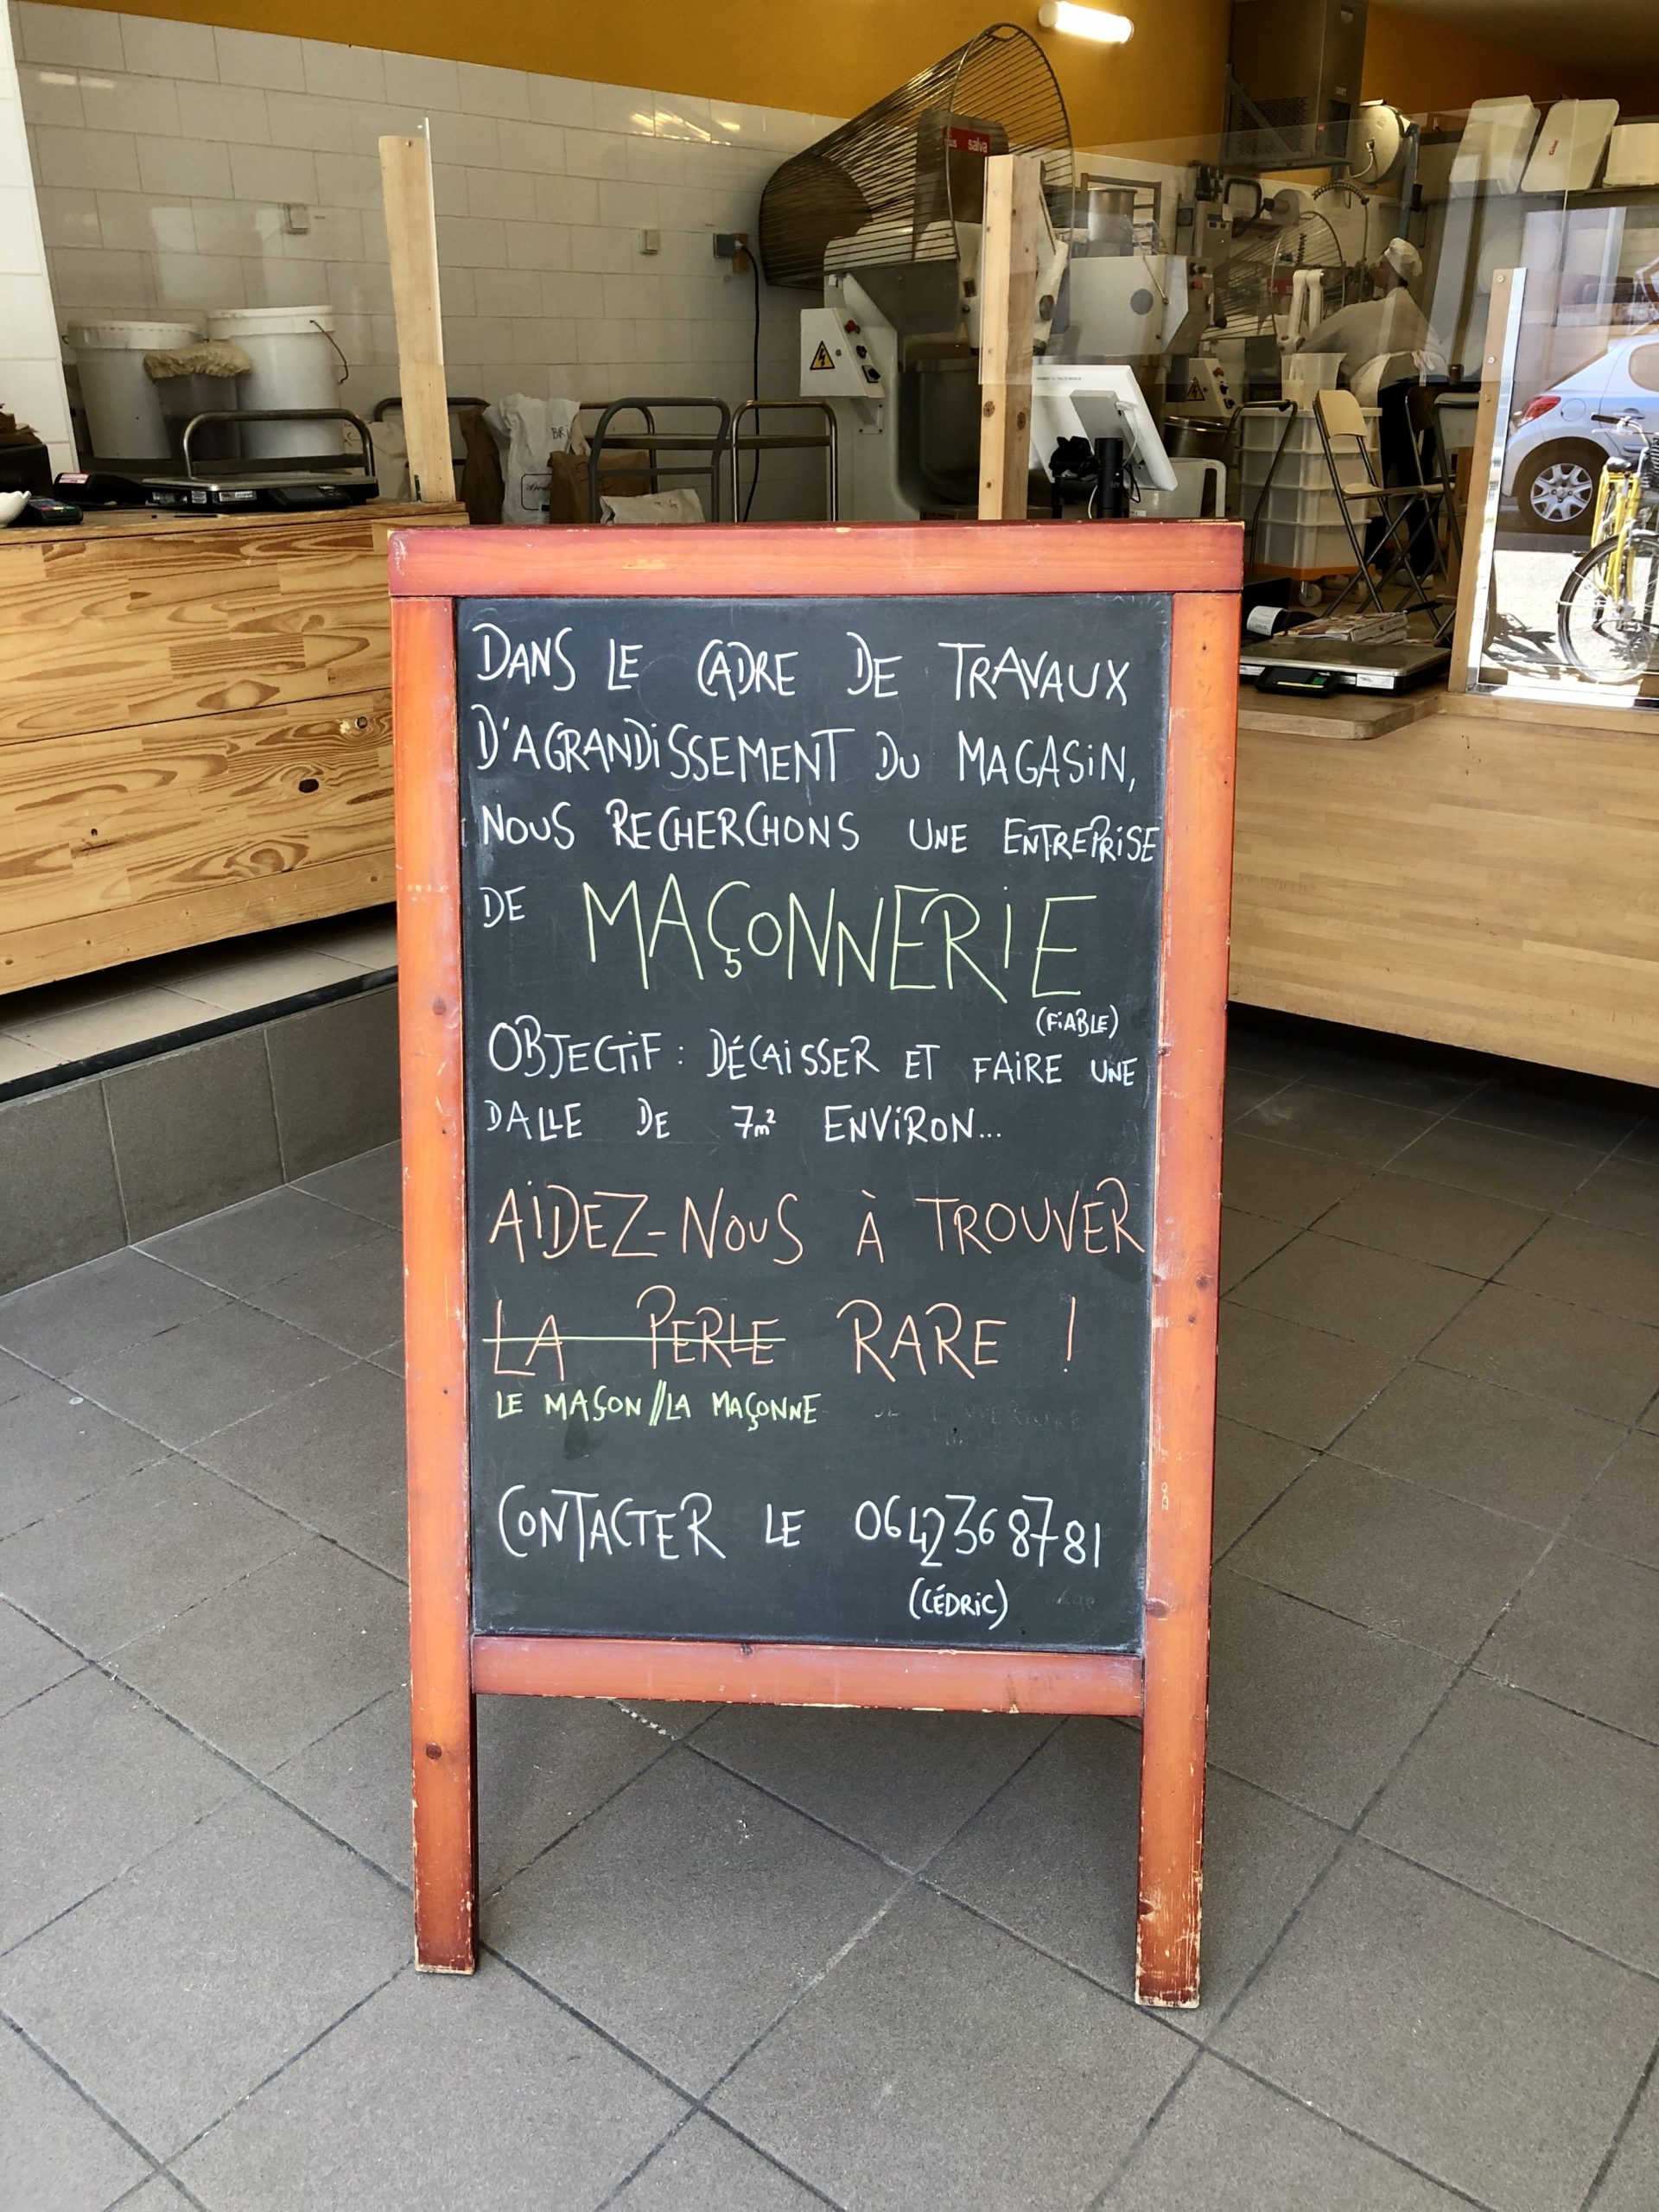 salva
BRI
DANS LE CADRE DE TRAVAUX
D'AGRANDISSEMENT DU MAGASIN,
NOUS RECHERCHONS UNE ENTREPRISE
DE MAÇONNERIE
(FIABLE)
OBJECTIF : DÉCAISSER ET FAIRE UNE
DALLE DE 7m² ENVIRON...
AIDEZ-NOUS À TROUVER
LA PERLE RARE !
LE MAÇON//LA MAÇONNE
CONTACTER LE 0642368781
(CÉDRIC)